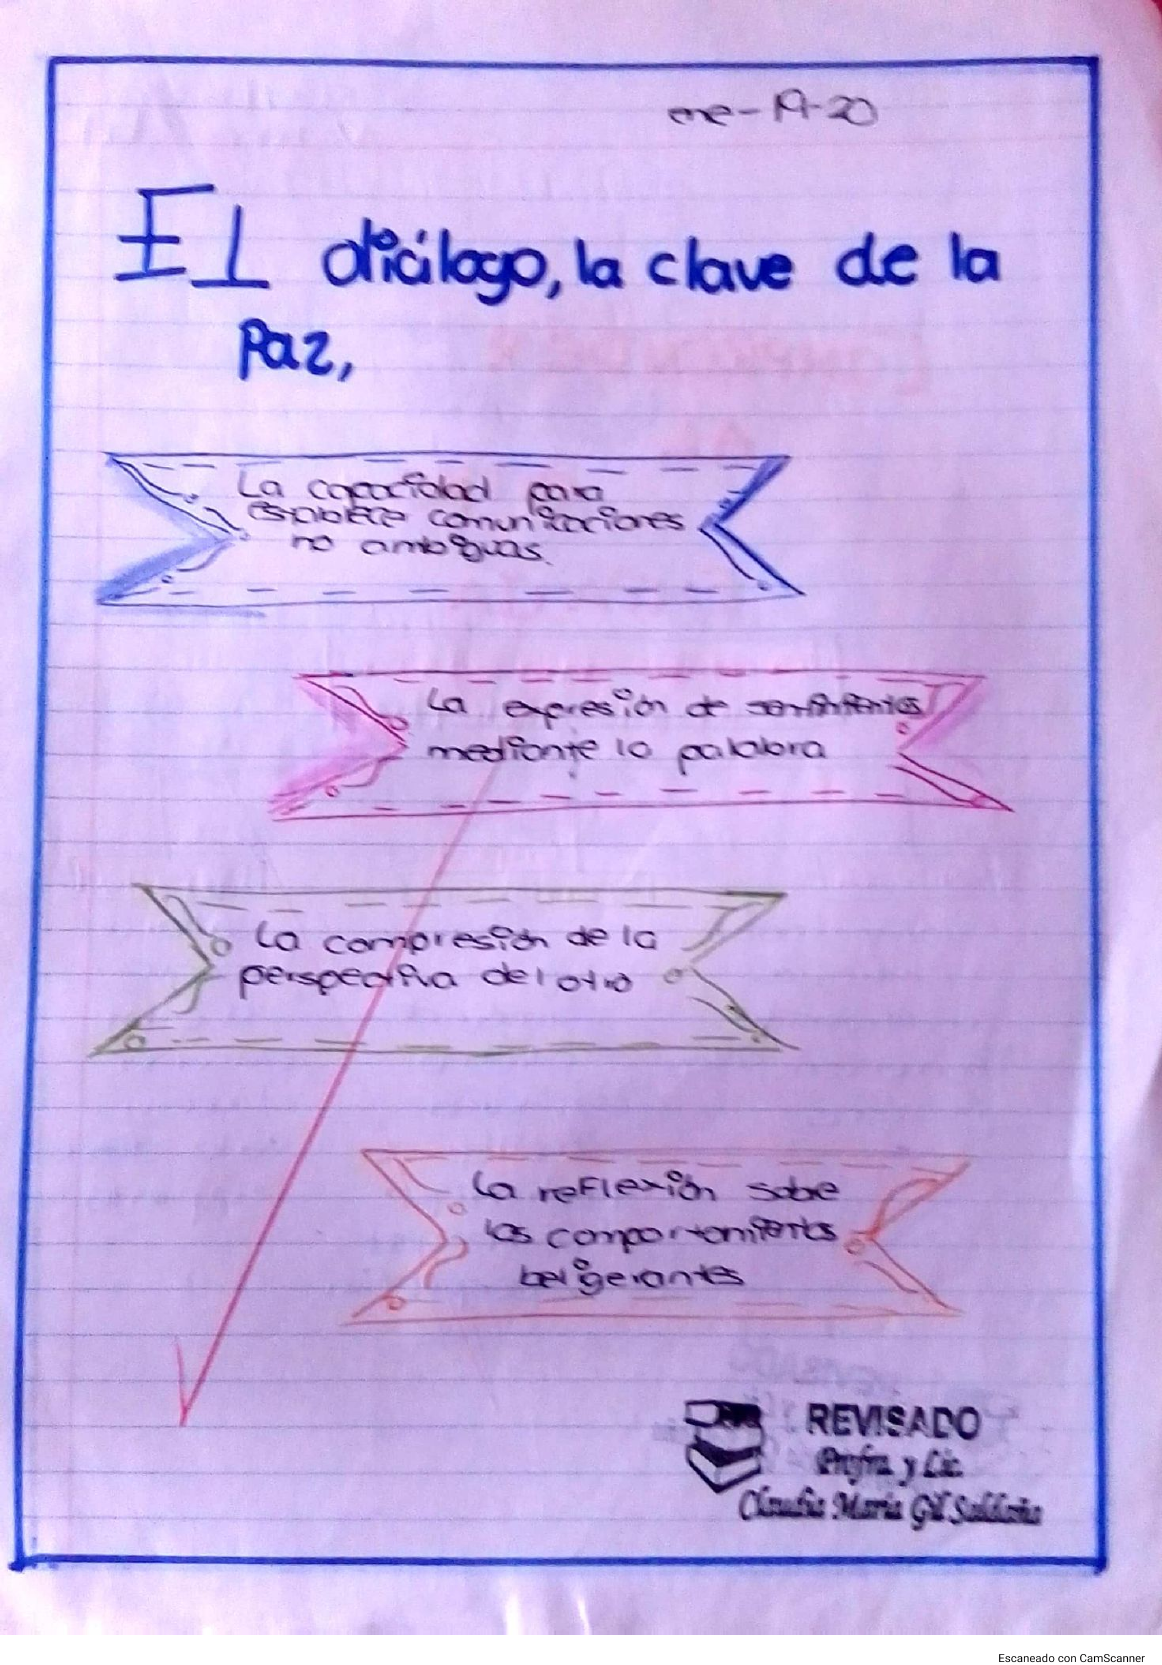 ene-19-20
El diálogo, la clave de la
Paz,
La capacidad para
establece comunicaciones
no ambiguas.
La expresión de sentimientos
mediante la palabra
La compresión de la
perspectiva del otro
La reflexión sobre
los comportamientos
beligerantes
REVISADO
Profra. y Lic.
Claudia María Gil Saldaña
Escaneado con CamScanner